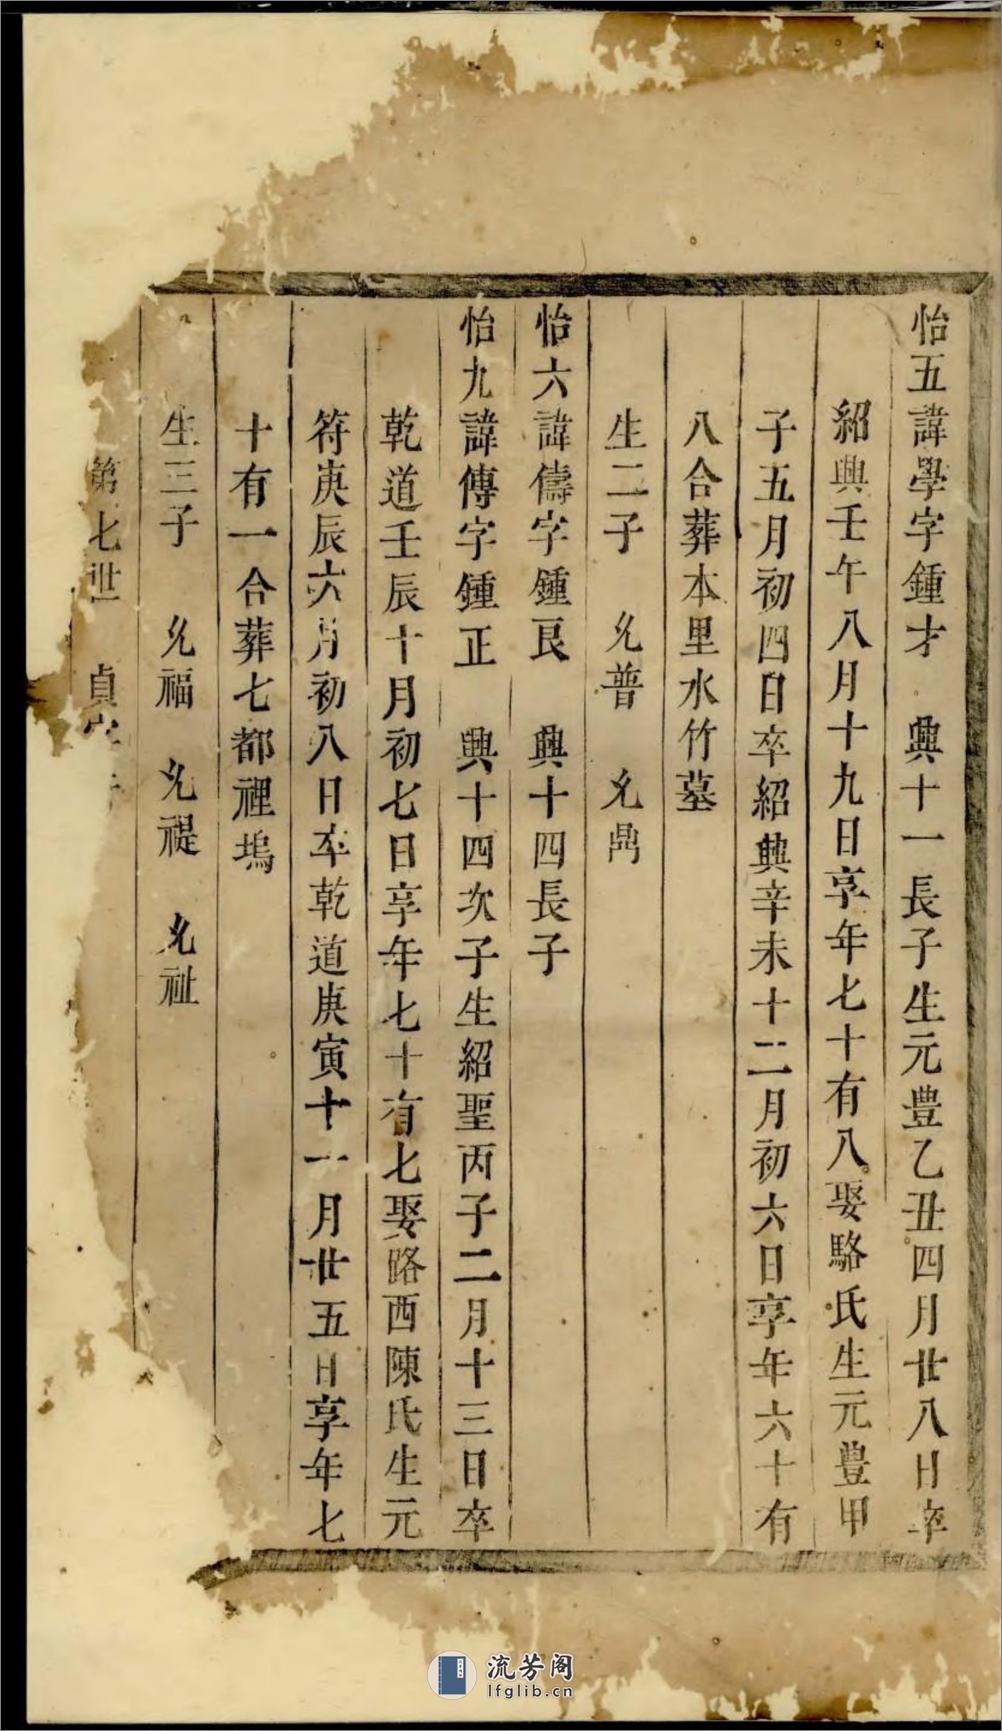 怡五諱學字鍾才　興十一長子生元豊乙丑四月廿八日卒
紹興壬午八月十九日享年七十有八娶駱氏生元豊甲
子五月初四日卒紹興辛未十二月初六日享年六十有
八合葬本里水竹墓
生二子　允普　允鼎
怡六諱儔字鍾良　興十四長子
怡九諱傳字鍾正　興十四次子生紹聖丙子二月十三日卒
乾道壬辰十月初七日享年七十有七娶路西陳氏生元
符庚辰六月初八日卒乾道庚寅十一月廿五日享年七
十有一合葬七都裡塢
生三子　允福　允禔　允祉
第七世　貞
流芳阁
lfglib.cn